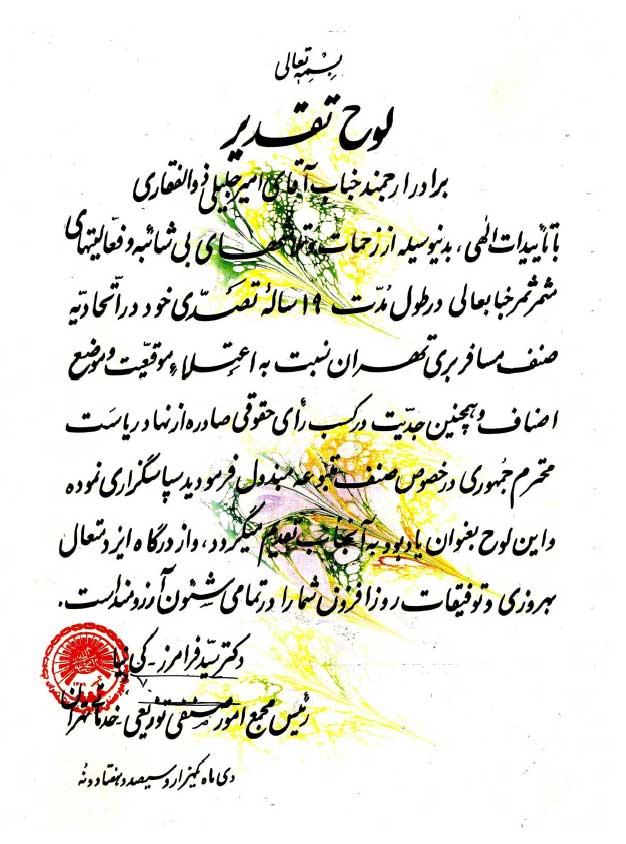 بسمه تعالی
لوح تقدیر
برادر ارجمند جناب آقای امیر جلیلی ذوالفقاری
با تأییدات الهی، بدینوسیله از زحمات و تلاشهای بی شائبه و فعالیتهای
مثمر ثمر جنابعالی در طول مدّت ۱۹ سالهٔ تصدّی خود در اتّحادیه
صنف مسافربری تهران نسبت به اعتلاء موقعیّت و موضع
اصناف و همچنین جدیّت در کسب رأی حقوقی صادره از نهاد ریاست
محترم جمهوری در خصوص صنف متبوعه مبذول فرمودید سپاسگزاری نموده
و این لوح بعنوان یادبود به آنجناب تقدیم میگردد، و از درگاه ایزد متعال
بهروزی و توفیقات روزافزون شما را در تمامی شئون آرزومند است.
دکتر سیّد فرامرز - کی نیا
رئیس مجمع امور صنفی توزیعی خدماتی تهران
دی ماه یکهزار و سیصد و هفتاد و نه